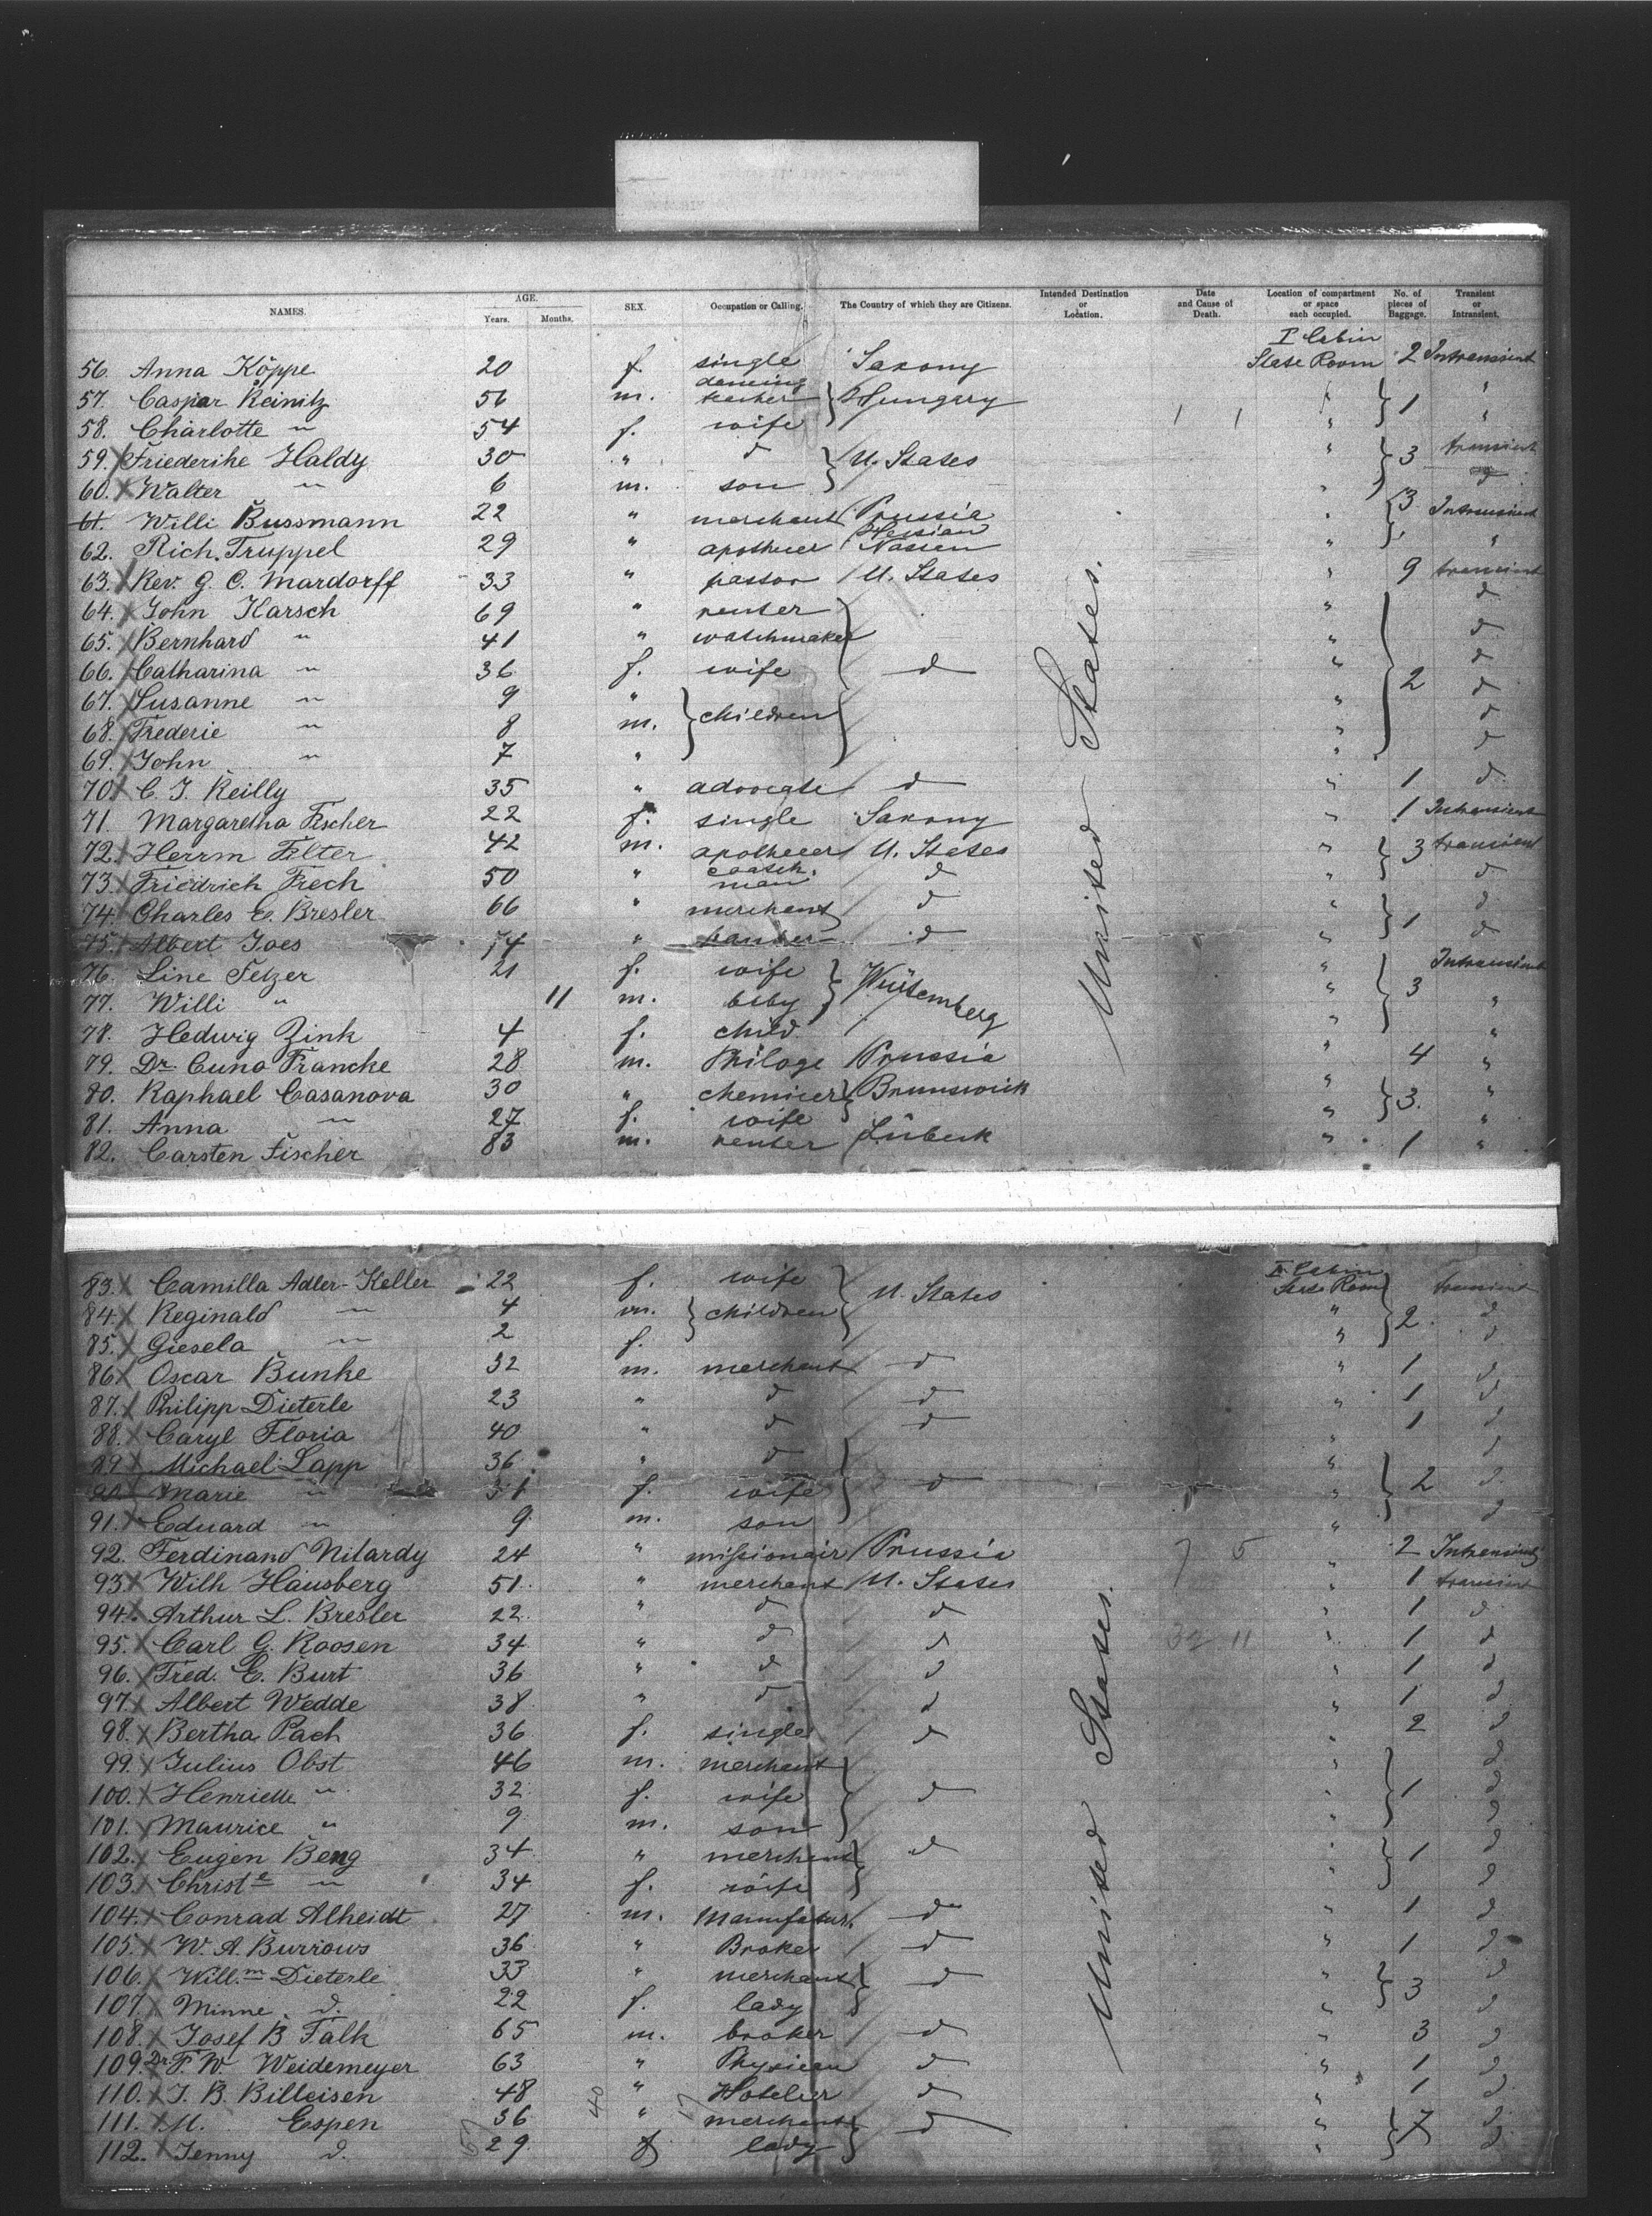 NAMES. AGE. Years. Months. SEX. Occupation or Calling. The Country of which they are Citizens. Intended Destination or Location. Date and Cause of Death. Location of compartment or space each occupied. No. of pieces of Baggage. Transient or Intransient.
I Cabin
56. Anna Köppe 20 f. single Saxony State Room 2 Intransient
57. Caspar Reinitz 56 m. dancing teacher Hungary " 1 "
58. Charlotte " 54 f. wife " "
59. Friederike Haldy 30 " d U. States " 3 transient
60. Walter " 6 m. son " d
61. Willi Bussmann 22 " merchant Prussia " 3 Intransient
62. Rich. Truppel 29 " apothecer Hessian Nassau " "
63. Rev. G. C. Mardorff 33 " pastor U. States " 9 transient
64. John Karsch 69 " renter " d
65. Bernhard " 41 " watchmaker " d
66. Catharina " 36 f. wife d " 2 d
67. Susanne " 9 " children " d
68. Frederic " 8 m. " d
69. John " 7 " " d
70. C. J. Reilly 35 " advocate d " 1 d
71. Margaretha Fischer 22 f. single Saxony " 1 Intransient
72. Herrm Filter 42 m. apothecer U. States " 3 transient
73. Friedrich Frech 50 " coachman d " d
74. Charles E. Bresler 66 " merchant d " 1 d
75. Albert Joes 74 " d " d
76. Line Felzer 21 f. wife Würtemberg " 3 Intransient
77. Willi " 11 m. baby " "
78. Hedwig Zink 4 f. child " "
79. Dr. Cuno Francke 28 m. Philoge Prussia " 4 "
80. Raphael Casanova 30 " chemicer Brunswick " 3. "
81. Anna " 27 f. wife " "
82. Carsten Fischer 83 m. renter Lübeck " 1 "
United States.
I Cabin
83. Camilla Adler-Keller 22 f. wife U. States State Room 2. transient
84. Reginald " 4 m. children " d
85. Giesela " 2 f. " d
86. Oscar Bunke 32 m. merchant d " 1 d
87. Philipp Dieterle 23 " d d " 1 d
88. Caryl Floria 40 " d d " 1 d
89. Michael Lapp 36 " d d " 2 d
90. Marie " 31 f. wife " d
91. Eduard " 9 m. son " d
92. Ferdinand Nitardy 24 " missionair Prussia " 2 Intransient
93. Wilh Häusberg 51 " merchant U. States " 1 transient
94. Arthur L. Bresler 22 " d d " 1 d
95. Carl G. Roosen 34 " d d " 1 d
96. Fred. E. Burt 36 " d d " 1 d
97. Albert Wedde 38 " d d " 1 d
98. Bertha Pach 36 f. single d " 2 d
99. Julius Obst 46 m. merchant d " 1 d
100. Henriette " 32 f. wife " d
101. Maurice " 9 m. son " d
102. Eugen Beng 34 " merchant d " 1 d
103. Christe " 34 f. wife " d
104. Conrad Alheidt 27 m. Manufactur. d " 1 d
105. W. A. Burrows 36 " Broker d " 1 d
106. Willm Dieterle 33 " merchant d " 3 d
107. Minne d. 22 f. lady " d
108. Josef B Falk 65 m. broker d " 3 d
109. Dr F. W. Weidemeyer 63 " Physician d " 1 d
110. J. B. Billeisen 48 " Hotelier d " 1 d
111. M. Espen 36 " merchant d " 7 d
112. Jenny d. 29 f lady " d
United States.